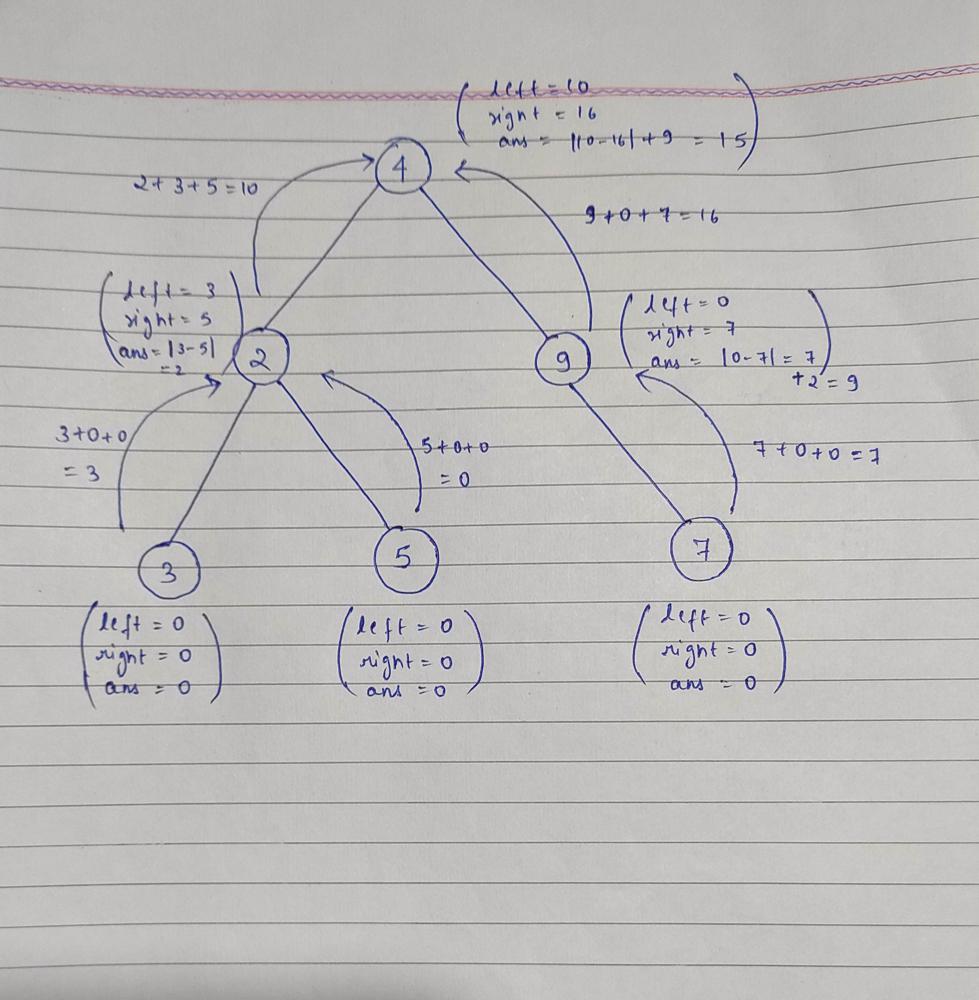 left = 10
right = 16
ans = |10-16| + 9 = 15
4
2 + 3 + 5 = 10
9 + 0 + 7 = 16
left = 3
right = 5
ans = |3-5|
= 2
2
9
left = 0
right = 7
ans = |0-7| = 7
+2 = 9
3+0+0
= 3
5+0+0
= 0
7 + 0 + 0 = 7
3
5
7
left = 0
right = 0
ans = 0
left = 0
right = 0
ans = 0
left = 0
right = 0
ans = 0